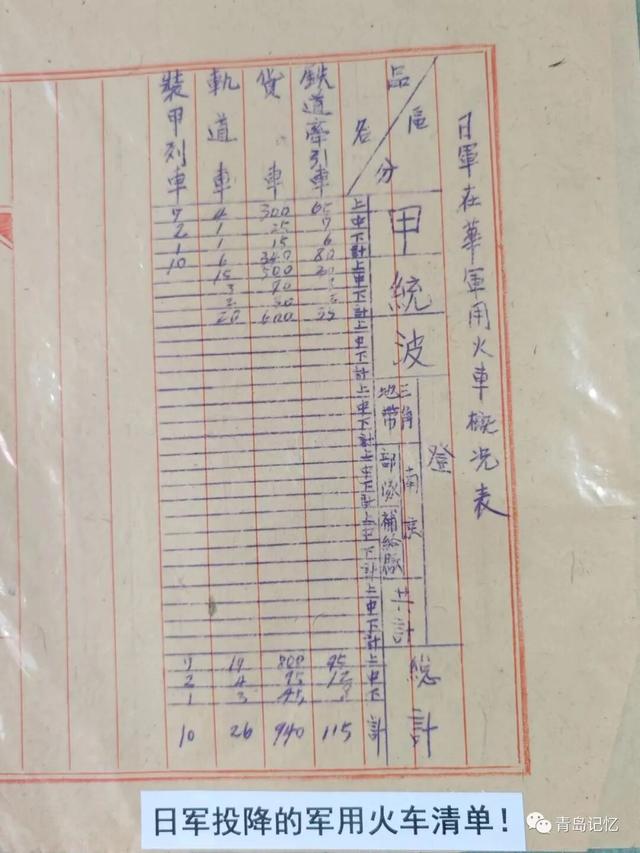 日軍在華軍用火車概況表
區分
品名
甲
統
波
登
三角地帶
南
部隊
補給廠
共計
總計
上中下計上中下計上中下計上中下計上中下計上中下計上中下計上中下計
鉄道牽引車 65 7 6 80 20 35 95 12 8 115
貨車 300 25 15 340 500 70 30 600 800 95 45 940
軌道車 4 1 1 6 15 3 2 20 19 4 3 26
裝甲列車 7 2 1 10 7 2 1 10
日军投降的军用火车清单！
青岛记忆